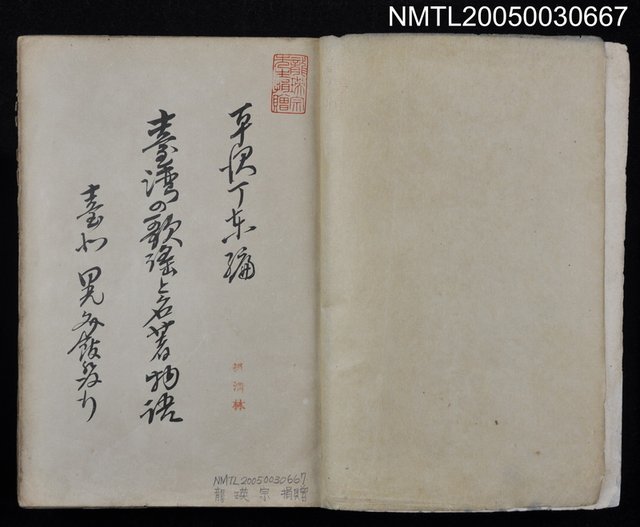 NMTL20050030667
龍瑛宗
先生捐贈
平沢丁東編
臺湾の歌謡と名著物語
臺北 晃文館發行
林
NMTL20050030667
龍瑛宗捐贈